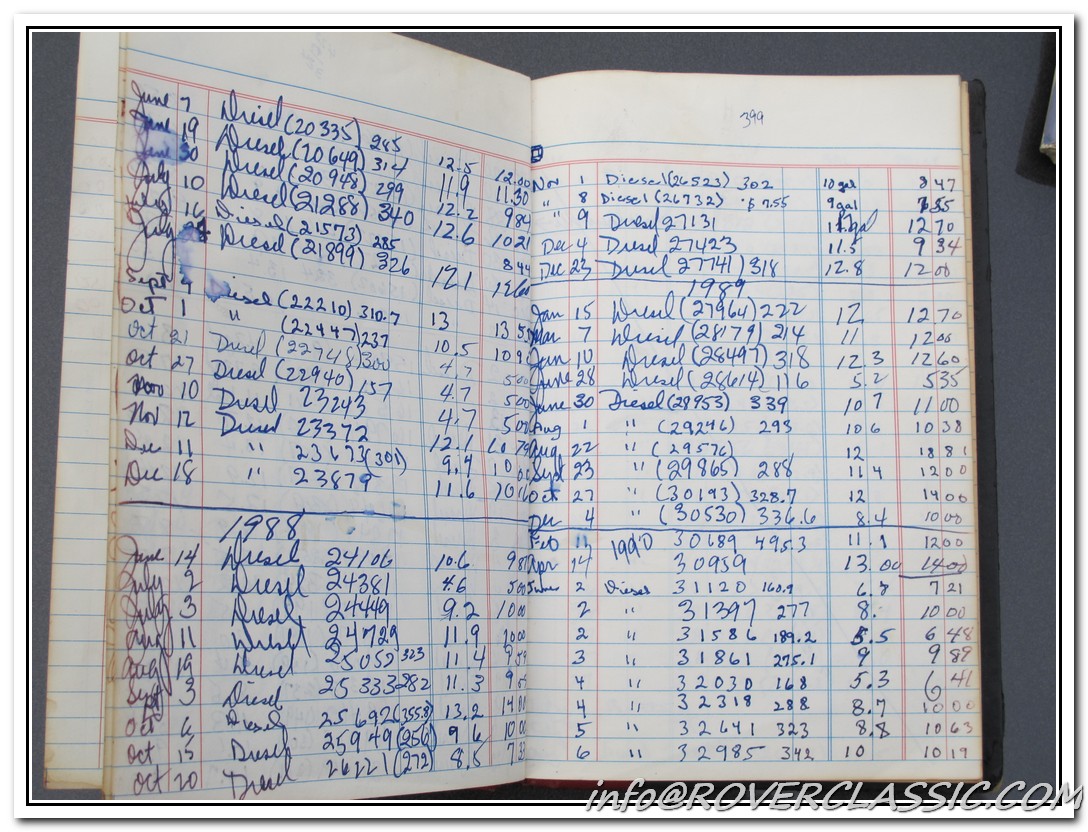 June 7 Diesel (20335) 285 12.5 12.00
June 19 Diesel (20649) 314 11.9 11.30
June 30 Diesel (20948) 299 12.2 984
July 10 Diesel (21288) 340 12.6 1021
16 Diesel (21573) 285 844
July Diesel (21899) 326 12.1
Sept 4 Diesel (22210) 310.7 13
Oct 1 " (22447) 237 10.5
Oct 21 Diesel (22748) 300 4.7 500
Oct 27 Diesel (22940) 157 4.7 500
Nov 10 Diesel 23243 4.7 500
Nov 12 Diesel 23372 12.1
Dec 11 " 23673 (301) 9.4
Dec 18 " 23879 11.6
1988
June 14 Diesel 24106 10.6
July 2 Diesel 24381 4.6
July 3 Diesel 24449 9.2 1000
Aug 11 Diesel 24729 11.9 1000
Aug 19 Diesel 25052 323 11.4
Sept 3 Diesel 25333 282 11.3
Oct 6 Diesel 25692 (355.8) 13.2 1400
Oct 15 Diesel 25949 (256) 9.6 1000
Oct 20 Diesel 26221 (272) 8.5
399
Nov 1 Diesel (26523) 302 10 gal 847
" 8 Diesel (26732) $7.55 9 gal
" 9 Diesel 27131 1270
Dec 4 Diesel 27423 11.5 934
Dec 23 Diesel 27741) 318 12.8 1200
1989
Jan 15 Diesel (27964) 222 12 1270
Mar 7 Diesel (28179) 214 11 1200
Jun 10 Diesel (28497) 318 12.3 1260
June 28 Diesel (28614) 116 5.2 535
June 30 Diesel (28953) 339 10 7 1100
Aug 1 " (29246) 293 10 6 1038
Aug 22 " (29576) 12 1881
Sept 23 " (29865) 288 11 4 1200
Oct 27 " (30193) 328.7 12 1400
Dec 4 " (30530) 336.6 8.4 1000
Feb 11 1990 30689 495.3 11.1 1200
Apr 14 30959 13.00 1400
2 Diesel 31120 160.9 721
2 " 31397 277 8. 1000
2 " 31586 189.2 5.5 648
3 " 31861 275.1 9 989
4 " 32030 168 5.3 641
4 " 32318 288 8.7 1000
5 " 32641 323 8.8 1063
6 " 32985 342 10 1019
info@ROVERCLASSIC.COM